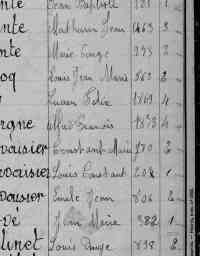 nte Jean Baptiste 1
nte Mathurin Jean 1463 3
nte Marie Ange 2
oq Louis Jean Marie 563 2
Lucien Félix 1849 4
rgne Alfred François 1838 4
vaisier Constant Marie 570 2
vaisier Louis Constant 208 1
vaisier Emile Jean 806 2
vé Jean Marie 382 1
linet Louis Ange 898 2